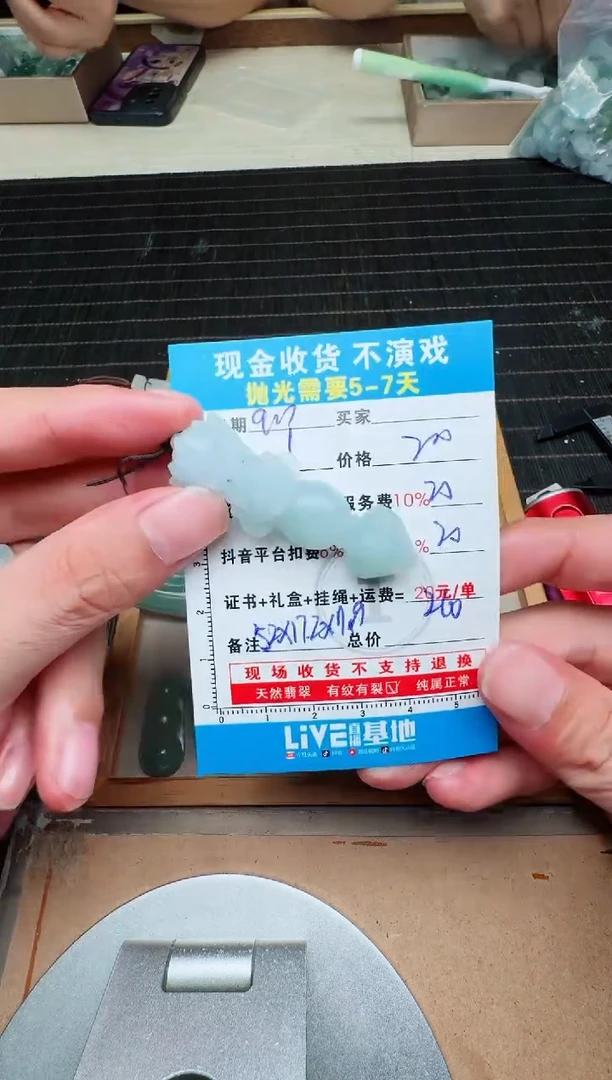 现金收货 不演戏
抛光需要5-7天
期 927 买家
价格 200
服务费10% 20
抖音平台扣费 % % 20
证书+礼盒+挂绳+运费= 20元/单
260
备注 总价
现场收货不支持退换
天然翡翠 有纹有裂☑ 纯属正常
0 1 2 3 4 5
1 2 3
LiVE直播基地